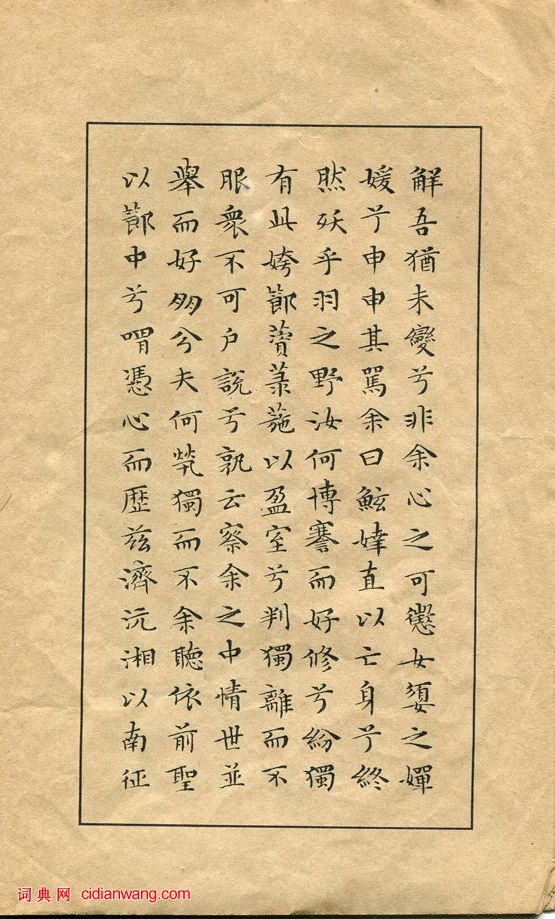 解吾猶未變兮非余心之可懲女嬃之嬋
媛兮申申其罵余曰鮌婞直以亡身兮終
然殀乎羽之野汝何博謇而好修兮紛獨
有此姱節薋菉葹以盈室兮判獨離而不
服衆不可户說兮孰云察余之中情世並
舉而好朋兮夫何煢獨而不余聽依前聖
以節中兮喟憑心而歷兹濟沅湘以南征
词典网 cidianwang.com